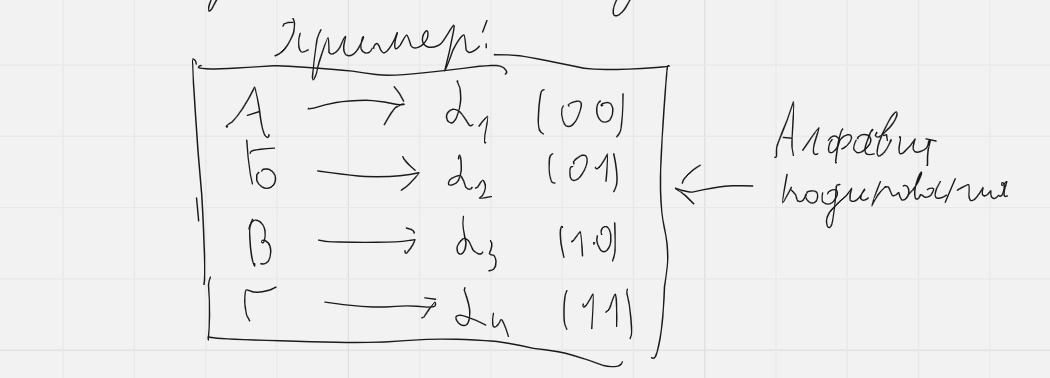 Пример:
А → α₁ (00)
Б → α₂ (01)
В → α₃ (10)
Г → α₄ (11)
← Алфавит
кодирования